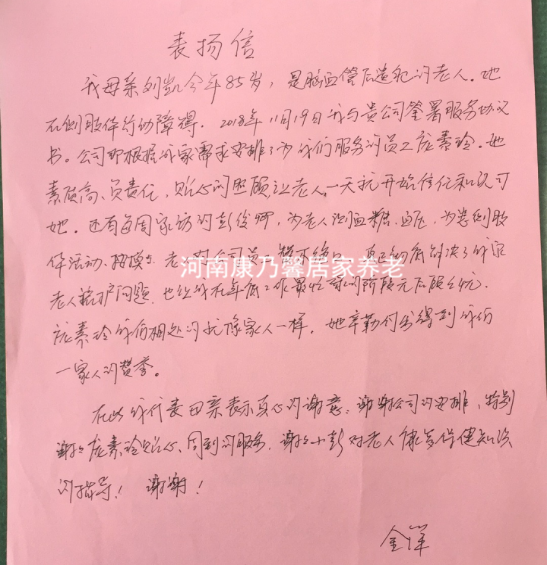 表扬信
我母亲刘凯今年85岁，是脑血管后遗症的老人。她
右侧肢体行动障碍。2018年11月19日我与贵公司签署服务协议
书。公司即根据我家需求安排了为我们服务的员工庞素玲。她
素质高、负责任，贴心的照顾让老人一天就开始信任和认可
她。还有每周家访的彭俊娜，为老人测血糖、血压，为患侧肢
体活动、按摩。老人对公司员工赞不绝口。真正的解决了我家
老人看护问题，也让我在年底工作最忙的阶段无后顾之忧。
庞素玲与我们相处的就像家人一样，她辛勤付出得到我们
一家人的赞季。
在此我代表母亲表示真心的谢意，谢谢公司的安排，特别
谢谢庞素玲贴心、周到的服务，谢谢小彭对老人康复保健知识
的指导！谢谢！
金洋
河南康乃馨居家养老